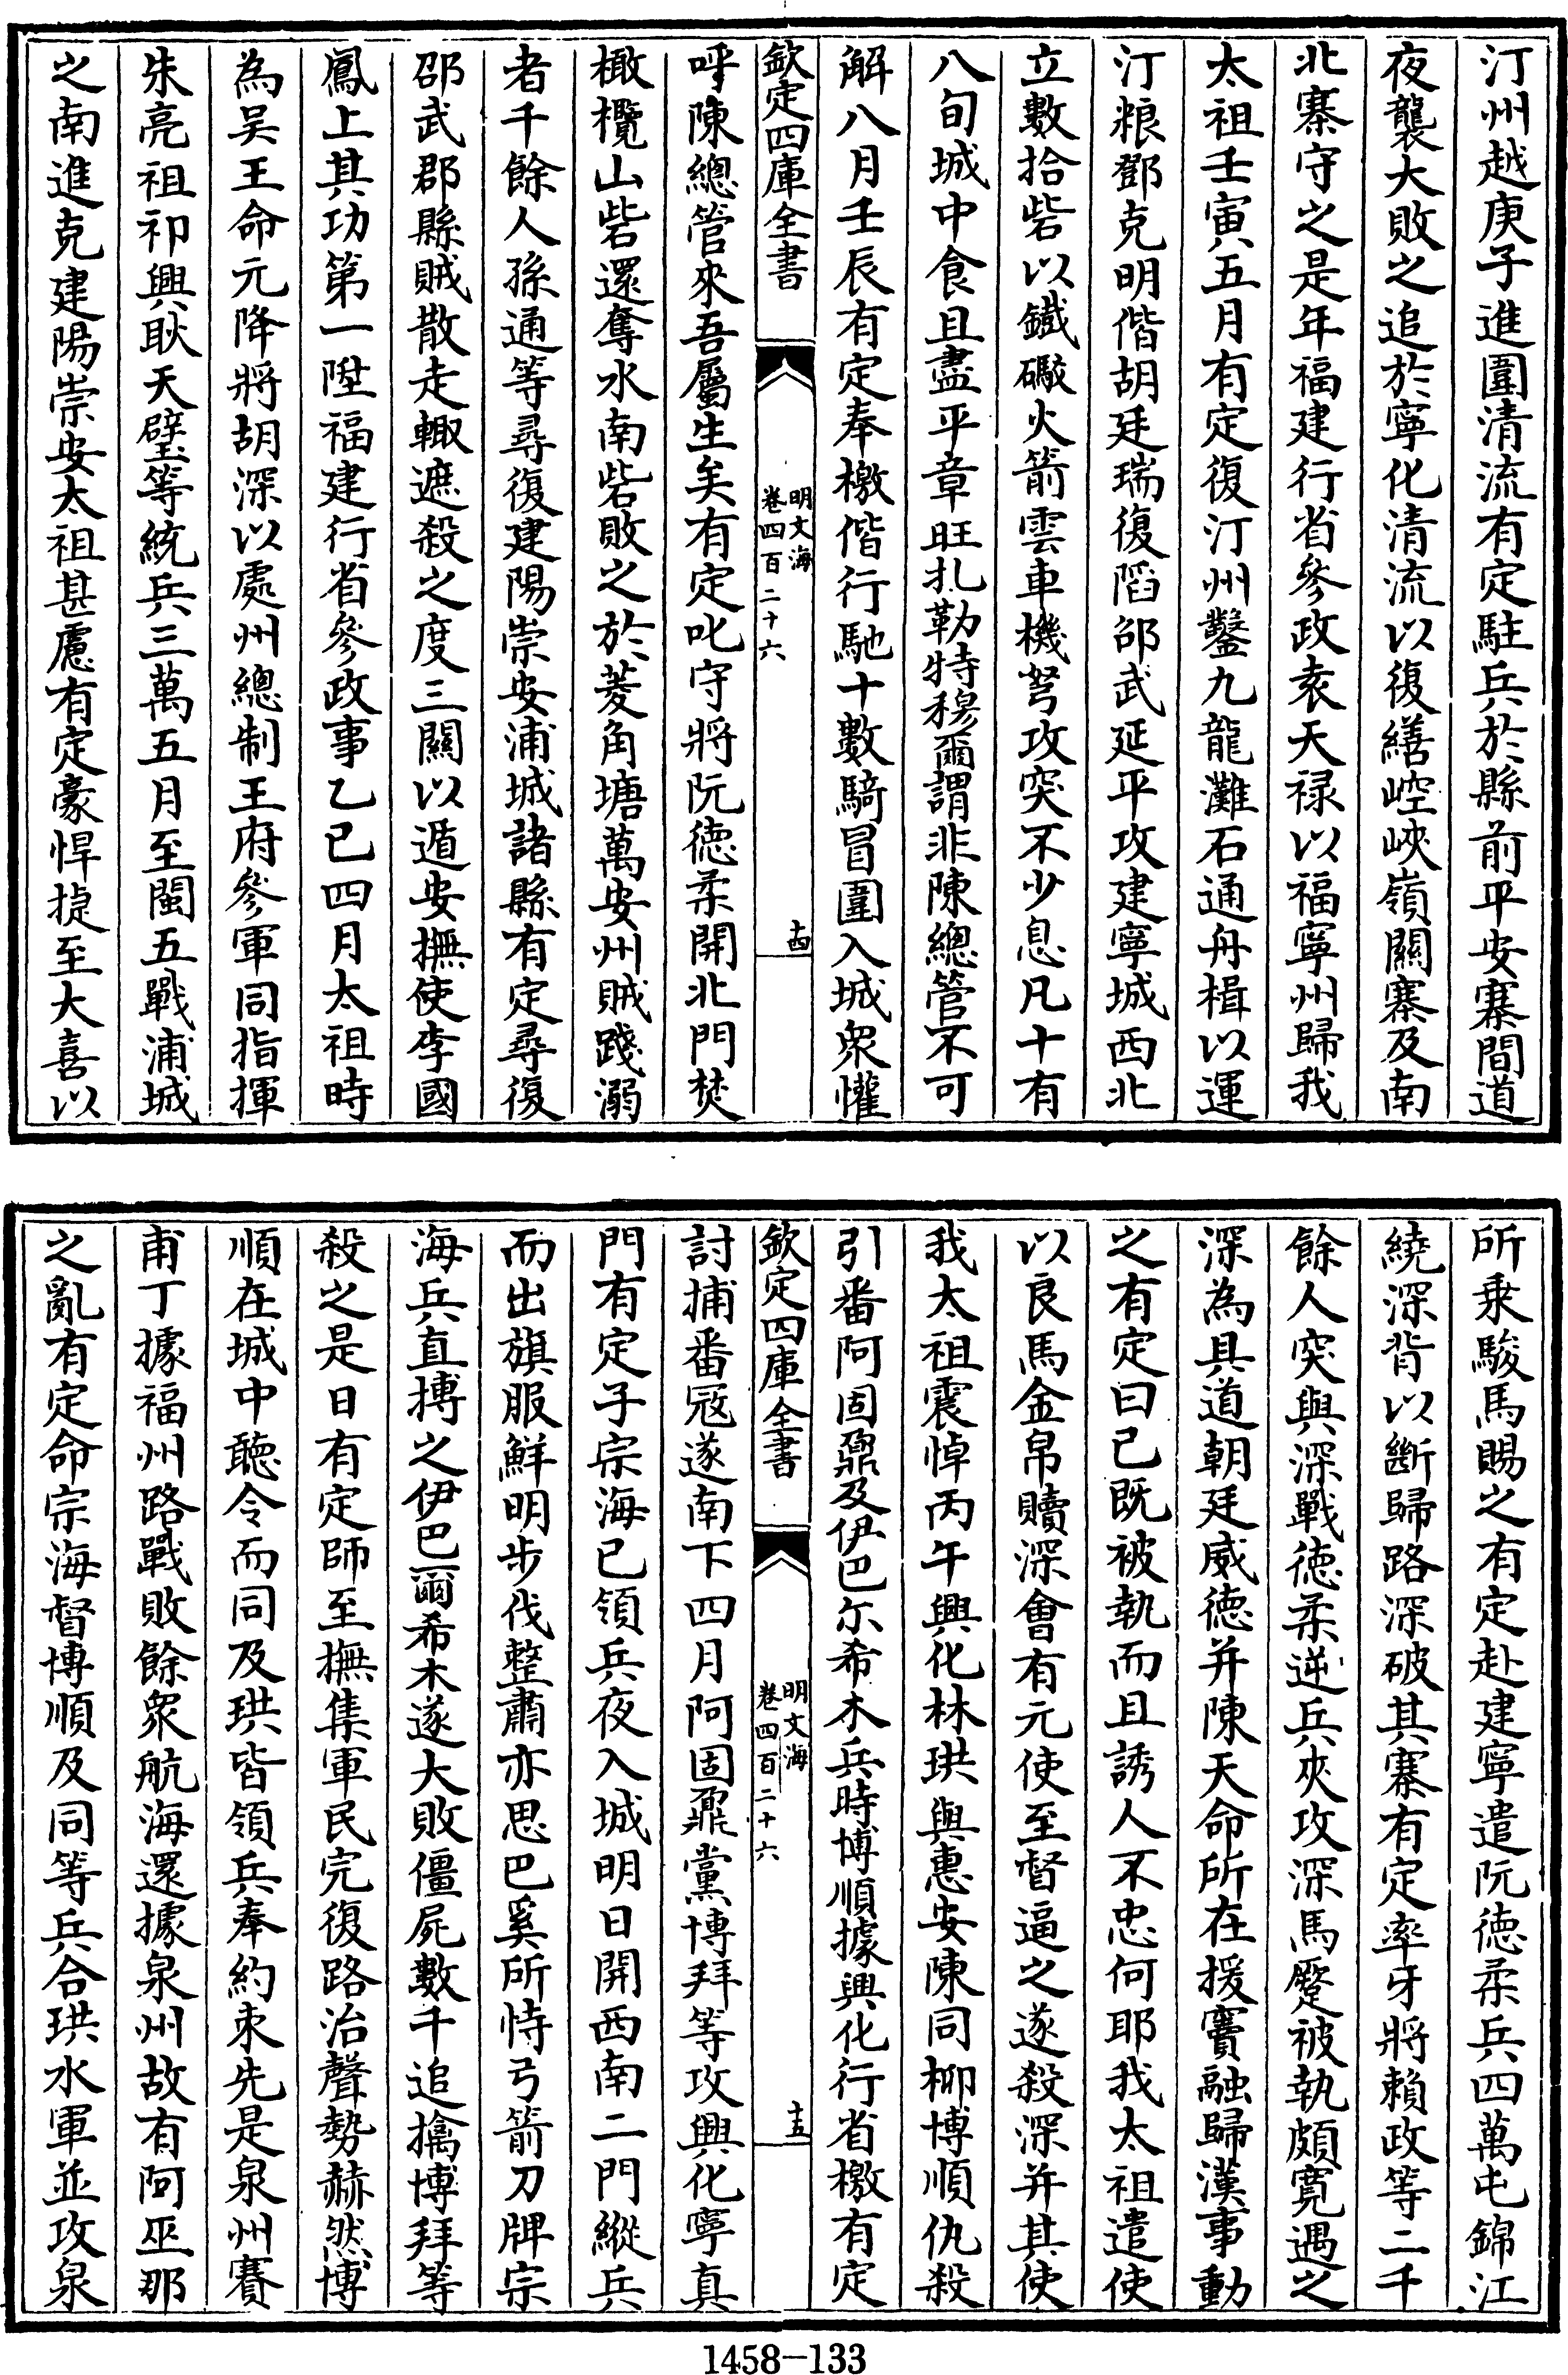 汀州越庚子進圍清流有定駐兵於縣前平安寨間道
夜襲大敗之追於寧化清流以復繕崆峽嶺關寨及南
北寨守之是年福建行省參政袁天禄以福寧州歸我
太祖壬寅五月有定復汀州鑿九龍灘石通舟楫以運
汀粮鄧克明偕胡廷瑞復陷邵武延平攻建寧城西北
立數拾砦以鐵礮火箭雲車機弩攻突不少息凡十有
八旬城中食且盡平章旺扎勒特穆爾謂非陳總管不可
解八月壬辰有定奉檄偕行馳十數騎冒圍入城衆懽
欽定四庫全書
明文海
卷四百二十六
十四
呼陳總管來吾屬生矣有定叱守將阮德柔開北門焚
橄欖山砦還奪水南砦敗之於菱角塘萬安州賊踐溺
者千餘人孫通等尋復建陽崇安浦城諸縣有定尋復
邵武郡縣賊散走輙遮殺之度三關以遁安撫使李國
鳳上其功第一陞福建行省參政事乙巳四月太祖時
為吴王命元降將胡深以處州總制王府參軍同指揮
朱亮祖祁興耿天璧等統兵三萬五月至閩五戰浦城
之南進克建陽崇安太祖甚慮有定豪悍捷至大喜以
所乗駿馬賜之有定赴建寧遣阮德柔兵四萬屯錦江
繞深背以斷歸路深破其寨有定率牙將賴政等二千
餘人突與深戰德柔逆兵夾攻深馬蹷被執頗寛遇之
深為具道朝廷威德并陳天命所在援竇融歸漢事動
之有定曰已既被執而且誘人不忠何耶我太祖遣使
以良馬金帛贖深會有元使至督逼之遂殺深并其使
我太祖震悼丙午興化林珙與惠安陳同柳博順仇殺
引番阿固鼐及伊巴尔希木兵時博順據興化行省檄有定
欽定四庫全書
明文海
卷四百二十六
十五
討捕番冦遂南下四月阿固鼐黨博拜等攻興化寧真
門有定子宗海已領兵夜入城明日開西南二門縱兵
而出旗服鮮明步伐整肅亦思巴奚所恃弓箭刀牌宗
海兵直搏之伊巴爾希木遂大敗僵屍數千追擒博拜等
殺之是日有定師至撫集軍民完復路治聲勢赫然博
順在城中聽令而同及珙皆領兵奉約束先是泉州賽
甫丁據福州路戰敗餘衆航海還據泉州故有阿巫那
之亂有定命宗海督博順及同等兵合珙水軍並攻泉
1458-133